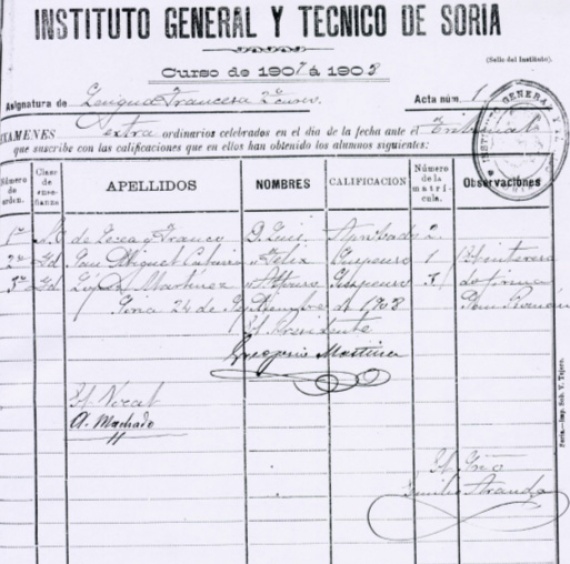 INSTITUTO GENERAL Y TECNICO DE SORIA
(Sello del Instituto).
Curso de 1907 á 1908
Asignatura de Lengua Francesa 2º curso. Acta núm. 1
EXAMENES extra ordinarios celebrados en el dia de la fecha ante el Tribunal
que suscribe con las calificaciones que en ellos han obtenido los alumnos siguientes:
Número de orden. Clase de enseñanza APELLIDOS NOMBRES CALIFICACION Número de la matrícula. Observaciones
1º de y Franco D. Luis Aprobado 2
2º Id San Miguel " Felix Suspenso 1
3º Id Martinez " Suspenso 3
Soria 24 de Septiembre de 1908
El Presidente
Gregorio Martinez
El Vocal
A. Machado
El Srio
Emilio Aranda